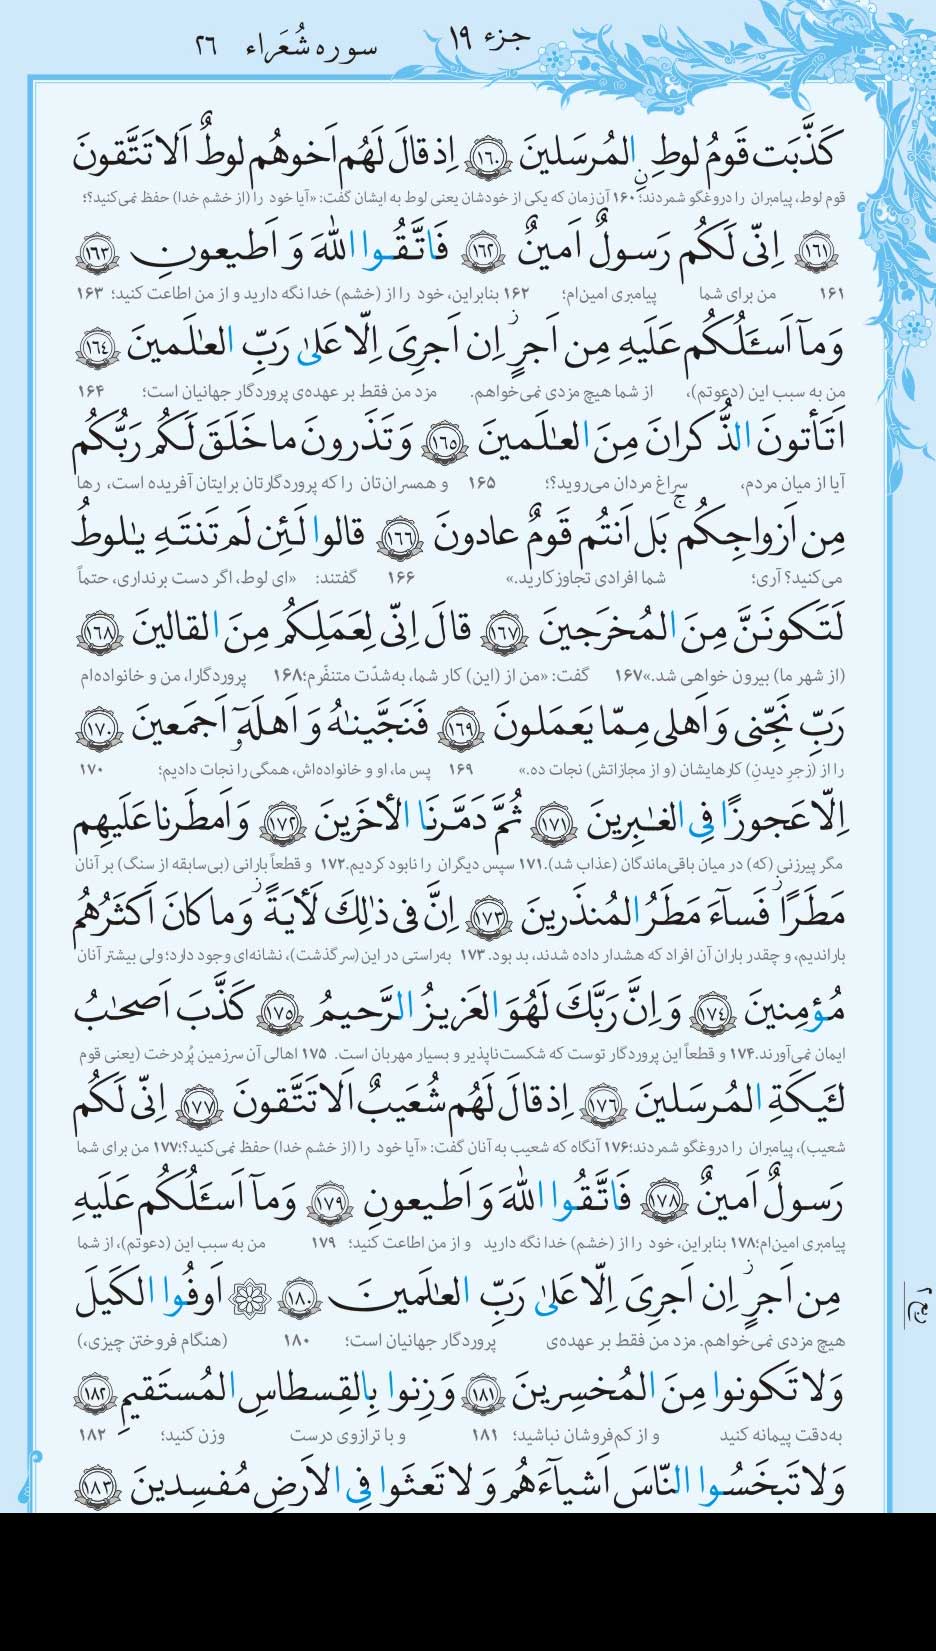 جزء ۱۹ سوره شُعَراء ۲۶
كَذَّبَت قَومُ لوطٍ ِۨالمُرسَلينَ ﴿١٦٠﴾ اِذ قالَ لَهُم اَخوهُم لوطٌ اَلا تَتَّقونَ
قوم لوط، پیامبران را دروغگو شمردند؛ ۱۶۰ آن زمان که یکی از خودشان یعنی لوط به ایشان گفت: «آیا خود را (از خشم خدا) حفظ نمی‌کنید؟؛
﴿١٦١﴾ اِنّی لَكُم رَسولٌ اَمینٌ ﴿١٦٢﴾ فَاتَّقُوا اللّٰهَ وَ اَطیعونِ ﴿١٦٣﴾
۱۶۱ من برای شما پیامبری امین‌ام؛ ۱۶۲ بنابراین، خود را از (خشم) خدا نگه دارید و از من اطاعت کنید؛ ۱۶۳
وَ مآ اَسـَٔلُكُم عَلَیهِ مِن اَجرٍ ۖز اِن اَجرِیَ اِلّا عَلیٰ رَبِّ العٰلَمینَ ﴿١٦٤﴾
من به سبب این (دعوتم)، از شما هیچ مزدی نمی‌خواهم. مزد من فقط بر عهده‌ی پروردگار جهانیان است؛ ۱۶۴
اَتَأتونَ الذُّكرانَ مِنَ العٰلَمینَ ﴿١٦٥﴾ وَ تَذَرونَ ما خَلَقَ لَكُم رَبُّكُم
آیا از میان مردم، سراغ مردان می‌روید؟؛ ۱۶۵ و همسران‌تان را که پروردگارتان برایتان آفریده است، رها
مِن اَزواجِكُم ۚ بَل اَنتُم قَومٌ عادونَ ﴿١٦٦﴾ قالوا لَئِن لَم تَنتَهِ یـٰلوطُ
می‌کنید؟ آری؛ شما افرادی تجاوزکارید.» ۱۶۶ گفتند: «ای لوط، اگر دست برنداری، حتماً
لَتَكونَنَّ مِنَ المُخرَجینَ ﴿١٦٧﴾ قالَ اِنّی لِعَمَلِكُم مِنَ القالینَ ﴿١٦٨﴾
(از شهر ما) بیرون خواهی شد.» ۱۶۷ گفت: «من از (این) کار شما، به‌شدّت متنفّرم؛ ۱۶۸ پروردگارا، من و خانواده‌ام
رَبِّ نَجِّنی وَ اَهلی مِمّا یَعمَلونَ ﴿١٦٩﴾ فَنَجَّینٰهُ وَ اَهلَهٓۥ اَجمَعینَ ﴿١٧٠﴾
را از (زجرِ دیدنِ) کارهایشان (و از مجازاتش) نجات ده.» ۱۶۹ پس ما، او و خانواده‌اش، همگی را نجات دادیم؛ ۱۷۰
اِلّا عَجوزًا فِی الغـٰبِرینَ ﴿١٧١﴾ ثُمَّ دَمَّرنَا الأٰخَرینَ ﴿١٧٢﴾ وَ اَمطَرنا عَلَیهِم
مگر پیرزنی (که) در میان باقی‌ماندگان (عذاب شد). ۱۷۱ سپس دیگران را نابود کردیم. ۱۷۲ و قطعاً بارانی (بی‌سابقه از سنگ) بر آنان
مَطَرًا ۖز فَسآءَ مَطَرُ المُنذَرینَ ﴿١٧٣﴾ اِنَّ فی ذٰلِكَ لَأٰیَةً ۖز وَ ما كانَ اَكثَرُهُم
باراندیم، و چقدر باران آن افراد که هشدار داده شدند، بد بود. ۱۷۳ به‌راستی در این (سرگذشت)، نشانه‌ای وجود دارد؛ ولی بیشتر آنان
مُؤمِنینَ ﴿١٧٤﴾ وَ اِنَّ رَبَّكَ لَهُوَ العَزیزُ الرَّحیمُ ﴿١٧٥﴾ كَذَّبَ اَصحٰبُ
ایمان نمی‌آورند. ۱۷۴ و قطعاً این پروردگار توست که شکست‌ناپذیر و بسیار مهربان است. ۱۷۵ اهالی آن سرزمین پُردرخت (یعنی قوم
لـَٔیكَةِ المُرسَلینَ ﴿١٧٦﴾ اِذ قالَ لَهُم شُعَیبٌ اَلا تَتَّقونَ ﴿١٧٧﴾ اِنّی لَكُم
شعیب)، پیامبران را دروغگو شمردند؛ ۱۷۶ آنگاه که شعیب به آنان گفت: «آیا خود را (از خشم خدا) حفظ نمی‌کنید؟؛ ۱۷۷ من برای شما
رَسولٌ اَمینٌ ﴿١٧٨﴾ فَاتَّقُوا اللّٰهَ وَ اَطیعونِ ﴿١٧٩﴾ وَ مآ اَسـَٔلُكُم عَلَیهِ
پیامبری امین‌ام؛ ۱۷۸ بنابراین، خود را از (خشم) خدا نگه دارید و از من اطاعت کنید؛ ۱۷۹ من به سبب این (دعوتم)، از شما
مِن اَجرٍ ۖز اِن اَجرِیَ اِلّا عَلیٰ رَبِّ العٰلَمینَ ﴿١٨٠﴾ ۞ اَوفُوا الكَیلَ
هیچ مزدی نمی‌خواهم. مزد من فقط بر عهده‌ی پروردگار جهانیان است؛ ۱۸۰ (هنگام فروختن چیزی،)
وَ لا تَكونوا مِنَ المُخسِرینَ ﴿١٨١﴾ وَ زِنوا بِالقِسطاسِ المُستَقیمِ ﴿١٨٢﴾
به‌دقت پیمانه کنید و از کم‌فروشان نباشید؛ ۱۸۱ و با ترازوی درست وزن کنید؛ ۱۸۲
وَ لا تَبخَسُوا النّاسَ اَشیآءَهُم وَ لا تَعثَوا فِی الاَرضِ مُفسِدینَ ﴿١٨٣﴾